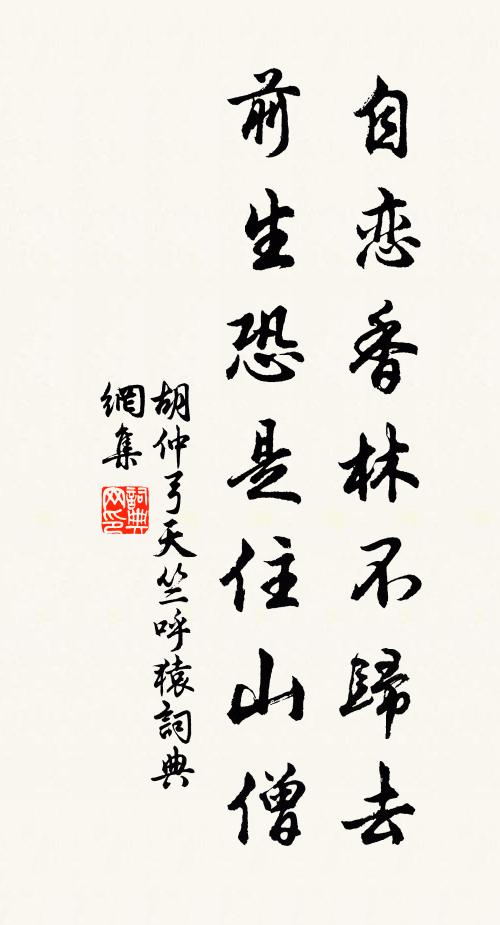 自恋香林不歸去
前生恐是住山僧
胡仲弓天竺呼猿詞典
網集
詞典
网印